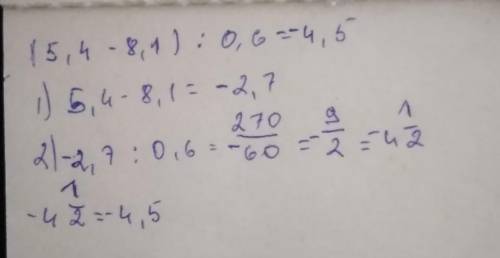 (5,4 - 8,1) : 0,6 = -4,5
1) 5,4 - 8,1 = -2,7
2) -2,7 : 0,6 = 270/-60 = -9/2 = -4 1/2
-4 1/2 = -4,5